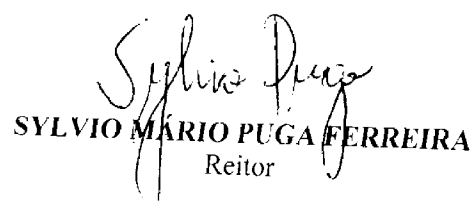 Sylvio Puga
SYLVIO MÁRIO PUGA FERREIRA
Reitor